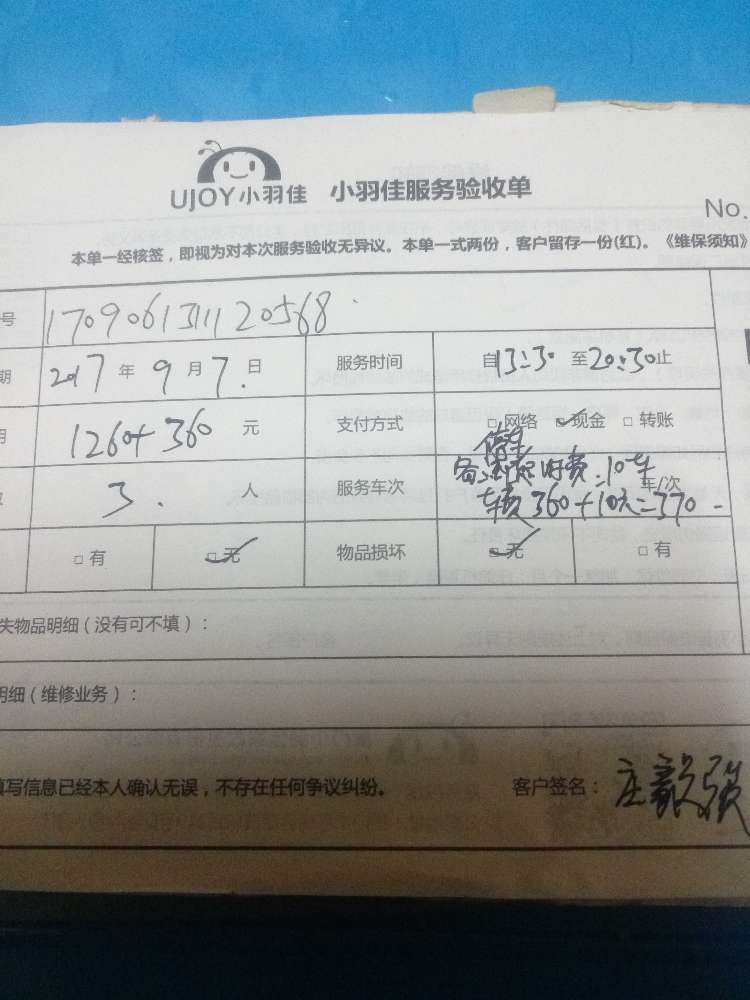 UJOY小羽佳 小羽佳服务验收单
No.
本单一经核签，即视为对本次服务验收无异议。本单一式两份，客户留存一份(红)。《维保须知》
号 170906131120568
期 2017 年 9 月 7. 日 服务时间 自13:30 至20:30止
用 1260+360 元 支付方式 □网络 ☑现金 □转账
3. 人 服务车次 年/次
停车
费:10
360+10元=370
□有 ☑无 物品损坏 ☑无 □有
失物品明细（没有可不填）：
明细（维修业务）：
填写信息已经本人确认无误，不存在任何争议纠纷。 客户签名：庄毅强